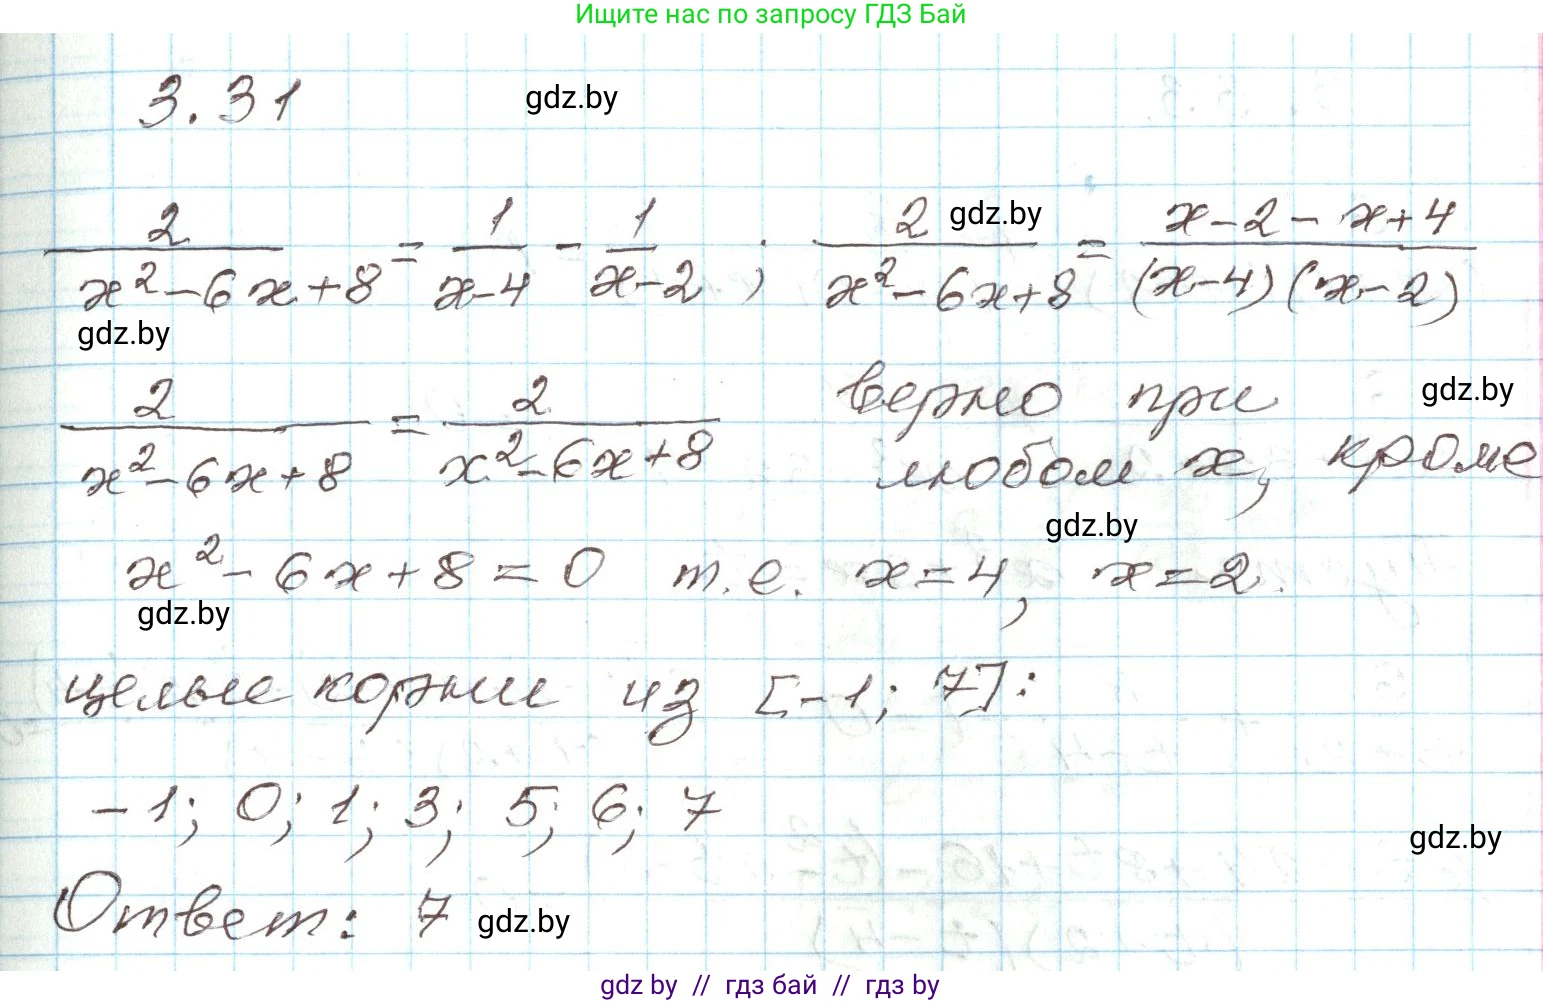 Ищите нас по запросу ГДЗ Бай
3.31 gdz.by
2/(x²-6x+8) = 1/(x-4) - 1/(x-2) ; 2/(x²-6x+8) = (x-2-x+4)/((x-4)(x-2)) gdz.by
gdz.by
2/(x²-6x+8) = 2/(x²-6x+8) верно при gdz.by
любом x, кроме
gdz.by
x²-6x+8=0 т.е. x=4, x=2.
gdz.by
целые корни из [-1; 7]:
-1; 0; 1; 3; 5; 6; 7
gdz.by
Ответ: 7 gdz.by
gdz by // гдз бай // гдз by